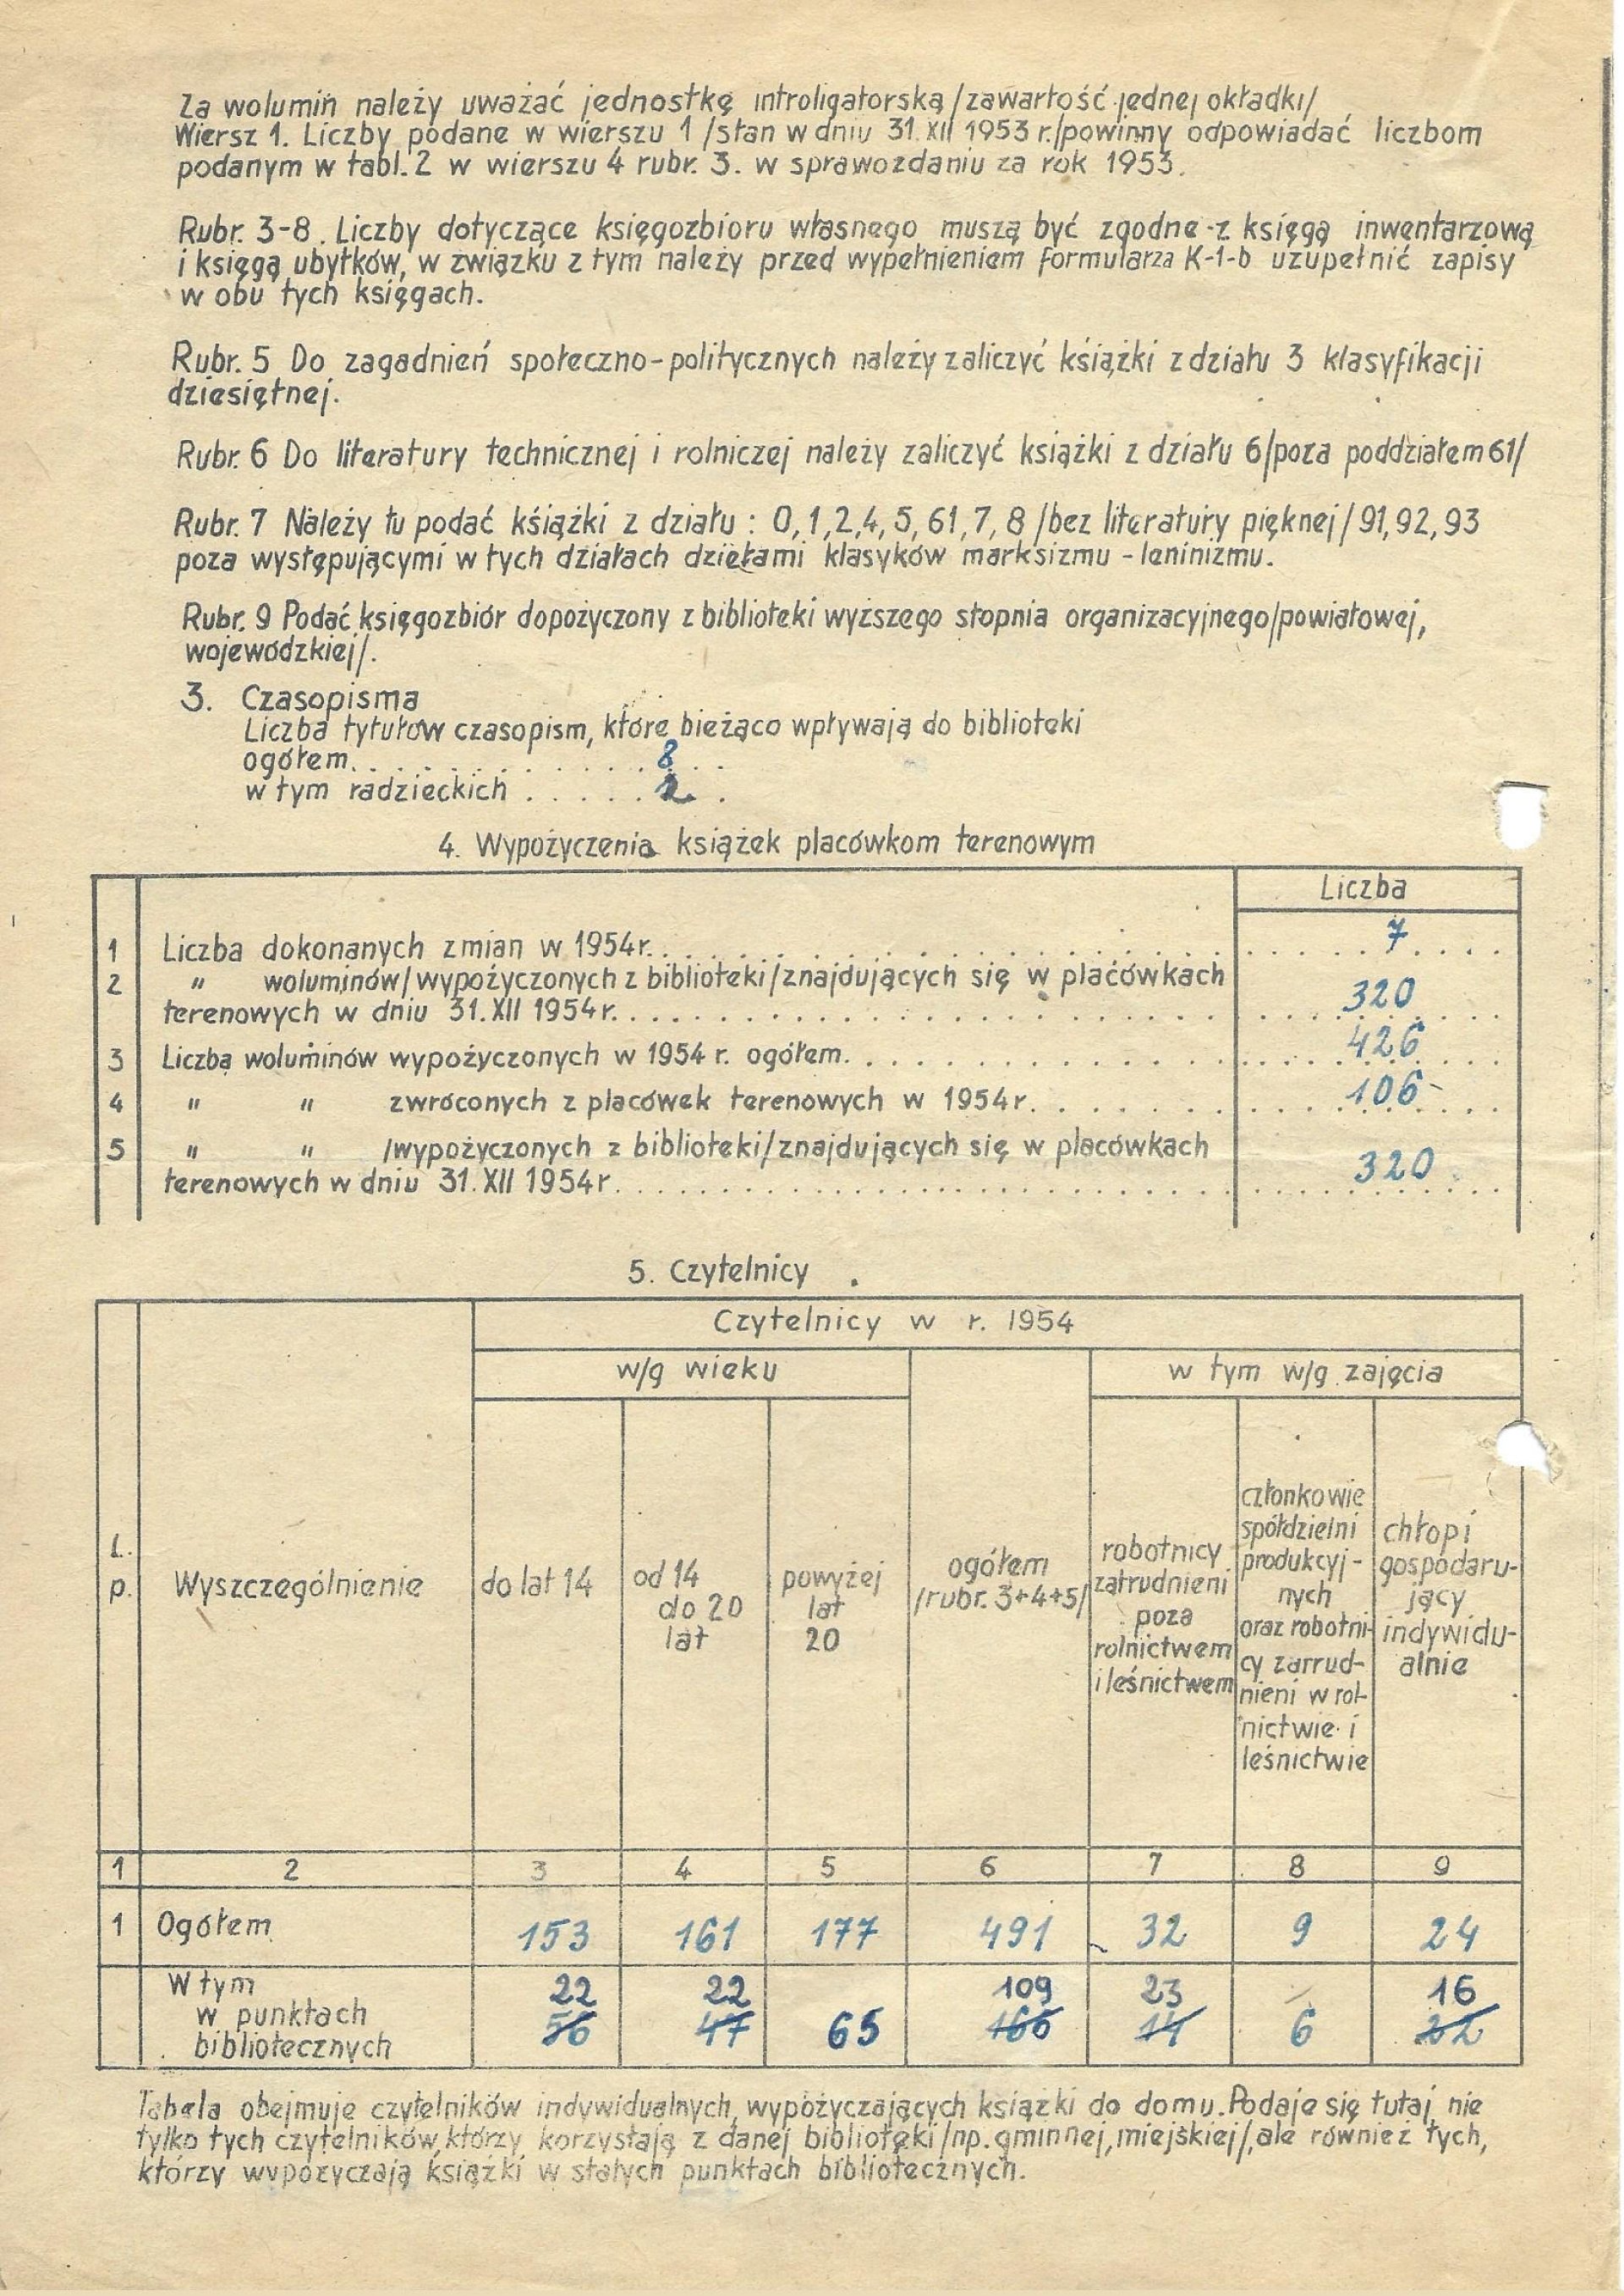 Za wolumin należy uważać jednostkę introligatorską /zawartość jednej okładki/
Wiersz 1. Liczby podane w wierszu 1 /stan w dniu 31.XII 1953 r./powinny odpowiadać liczbom
podanym w tabl. 2 w wierszu 4 rubr. 3. w sprawozdaniu za rok 1953.
Rubr. 3-8. Liczby dotyczące księgozbioru własnego muszą być zgodne z księgą inwentarzową
i księgą ubytków, w związku z tym należy przed wypełnieniem formularza K-1-b uzupełnić zapisy
w obu tych księgach.
Rubr. 5 Do zagadnień społeczno-politycznych należy zaliczyć książki z działu 3 klasyfikacji
dziesiętnej.
Rubr. 6 Do literatury technicznej i rolniczej należy zaliczyć książki z działu 6/poza poddziałem 61/
Rubr. 7 Należy tu podać książki z działu : 0,1,2,4,5,61,7,8 /bez literatury pięknej/ 91,92,93
poza występującymi w tych działach dziełami klasyków marksizmu - leninizmu.
Rubr. 9 Podać księgozbiór dopożyczony z biblioteki wyższego stopnia organizacyjnego/powiatowej,
wojewódzkiej/.
3. Czasopisma
Liczba tytułów czasopism, które bieżąco wpływają do biblioteki
ogółem. . . . . . . . . . . . . . 8 . .
w tym radzieckich . . . . . 2 .
4. Wypożyczenia książek placówkom terenowym
Liczba
1 Liczba dokonanych zmian w 1954r. . . . 7
2 " woluminów/wypożyczonych z biblioteki/znajdujących się w placówkach
terenowych w dniu 31.XII 1954 r. . . . 320
3 Liczba woluminów wypożyczonych w 1954 r. ogółem. . . . 426
4 " " zwróconych z placówek terenowych w 1954r. . . . 106-
5 " " /wypożyczonych z biblioteki/znajdujących się w placówkach
terenowych w dniu 31.XII 1954r. . . . 320
5. Czytelnicy
Czytelnicy w r. 1954
w/g wieku
w tym w/g zajęcia
L.
p.
Wyszczególnienie
do lat 14
od 14
do 20
lat
powyżej
lat
20
ogółem
/rubr. 3+4+5/
robotnicy
zatrudnieni
poza
rolnictwem
i leśnictwem
członkowie
spółdzielni
produkcyj-
nych
oraz robotni-
cy zatrud-
nieni w rol-
nictwie i
leśnictwie
chłopi
gospodaru-
jący
indywidu-
alnie
1 2 3 4 5 6 7 8 9
1 Ogółem 153 161 177 491 32 9 24
W tym 22 22 109 23 16
w punktach 56 47 65 166 14 6
bibliotecznych
Tabela obejmuje czytelników indywidualnych, wypożyczających książki do domu. Podaje się tutaj nie
tylko tych czytelników, którzy korzystają z danej biblioteki /np. gminnej, miejskiej/, ale również tych,
którzy wypożyczają książki w stałych punktach bibliotecznych.